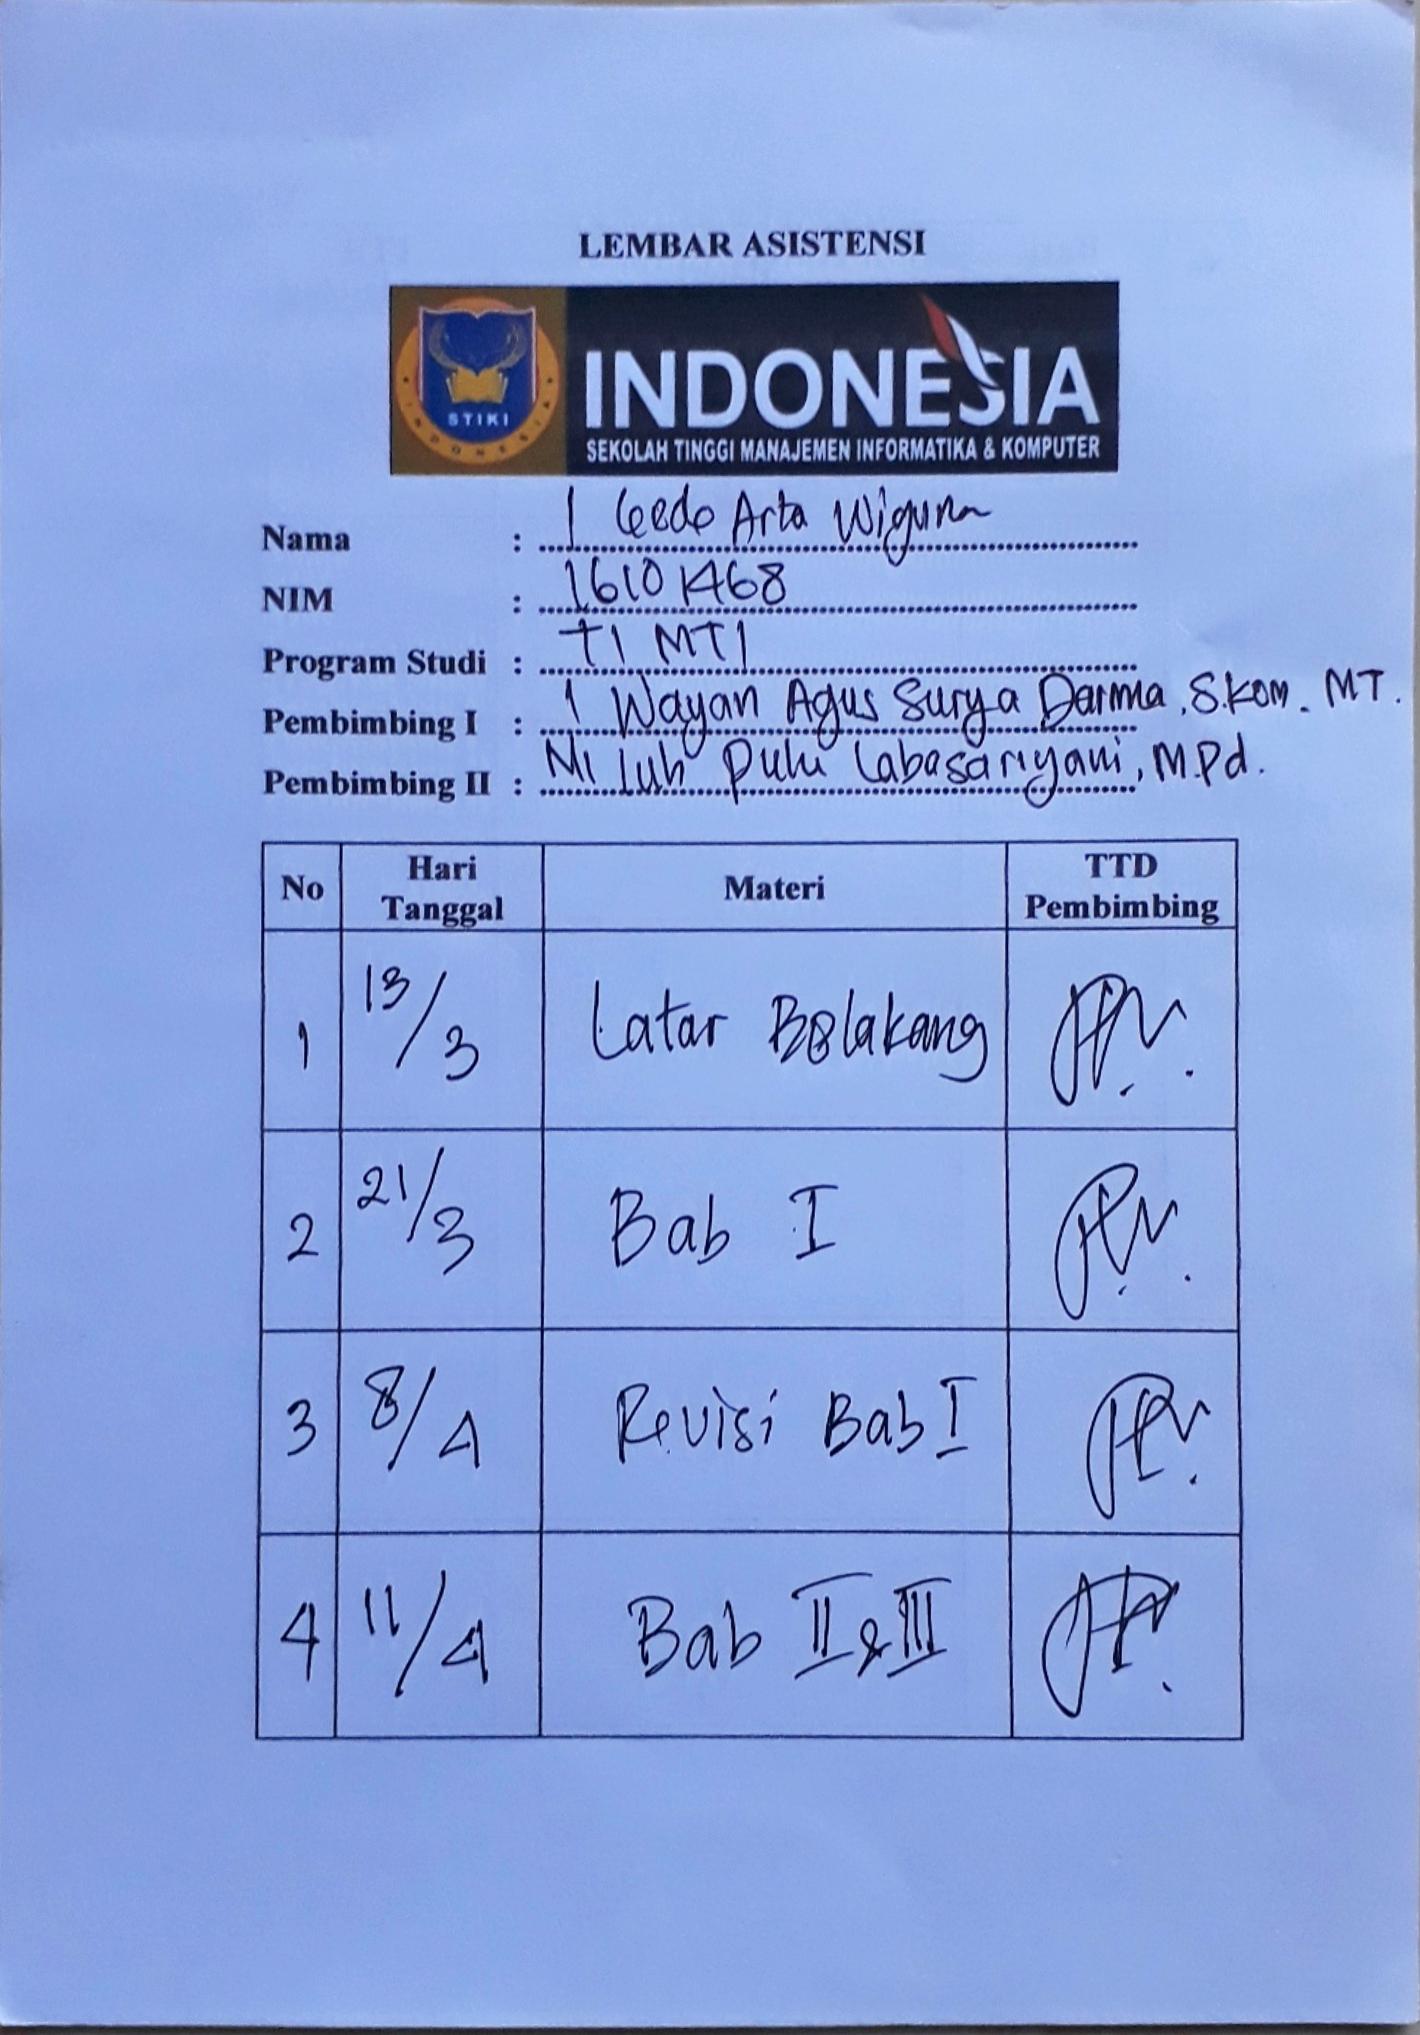 LEMBAR ASISTENSI
STIKI
INDONESIA
INDONESIA
SEKOLAH TINGGI MANAJEMEN INFORMATIKA & KOMPUTER
Nama : I Gede Arta Wiguna
NIM : 16101468
Program Studi : TI MTI
Pembimbing I : I Wayan Agus Surya Darma, S.Kom. MT.
Pembimbing II : Ni Luh Putu Labasariyani, M.Pd.
No Hari Tanggal Materi TTD Pembimbing
1 13/3 Latar Belakang
2 21/3 Bab I
3 8/4 Revisi Bab I
4 11/4 Bab II & III